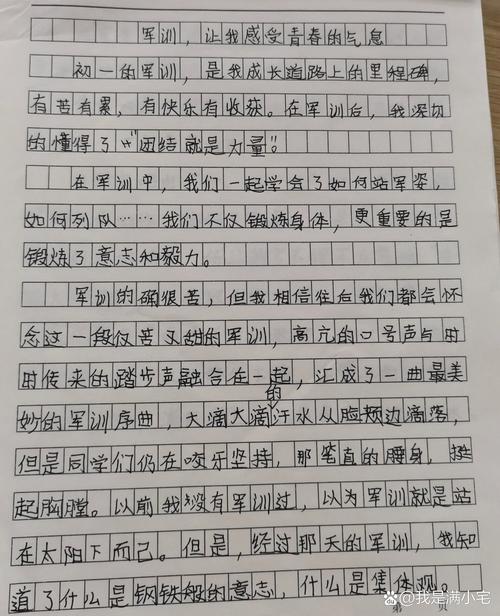 军训，让我感受青春的气息
初一的军训，是我成长道路上的里程碑，
有苦有累，有快乐有收获。在军训后，我深切
的懂得了“团结就是力量”。
在军训中，我们一起学会了如何站军姿，
如何列队……我们不仅锻炼身体，更重要的是
锻炼了意志和毅力。
军训的确很苦，但我相信往后我们都会怀
念这一段仅苦又甜的军训，高亢的口号声与时
时传来的踏步声融合在一起，汇成了一曲最美
妙的军训序曲，大滴大滴的汗水从脸颊边滴落，
但是同学们仍在咬牙坚持，那笔直的腰身，挺
起胸膛。以前我没有军训过，以为军训就是站
在太阳下而已。但是，经过那天的军训，我知
道了什么是钢铁般的意志，什么是集体观。
@我是满小宅